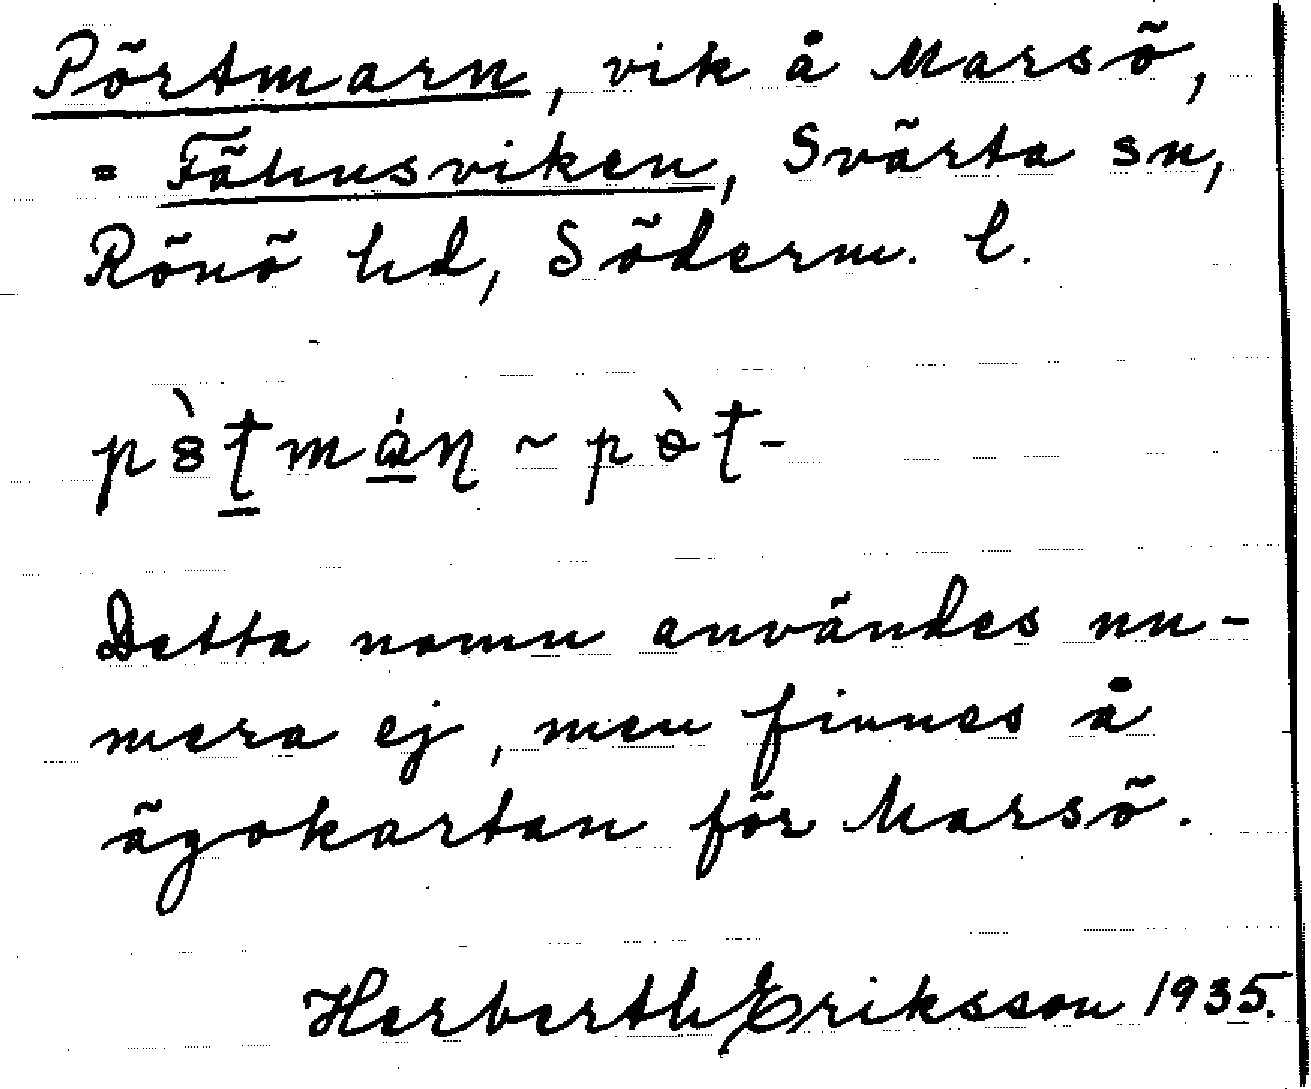 Pörtmarn, vik å Marsö,
= Fähusviken, Svärta sn,
Rönö hd, Söderm. l.
Detta namn användes nu-
mera ej, men finnes å
ägokartan för Marsö.
Herberth Eriksson 1935.